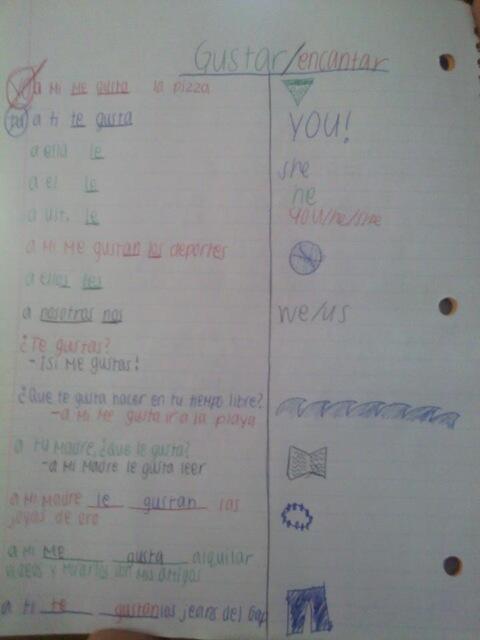 Gustar/encantar
a mi me gusta la pizza
tu a ti te gusta YOU!
a ella le she
a el le he
a ust. le you/he/she
a mi me gustan los deportes
a ellos les
a nosotros nos we/us
¿Te gustas?
-¡Si me gustas!
¿Que te gusta hacer en tu tiempo libre?
-a mi me gusta ir a la playa
a tu madre, ¿que le gusta?
-a mi madre le gusta leer
a mi madre le gustan las
joyas de oro
a mi me gusta alquilar
videos y mirarlos con mis amigos
a ti te gustan los jeans del Gap